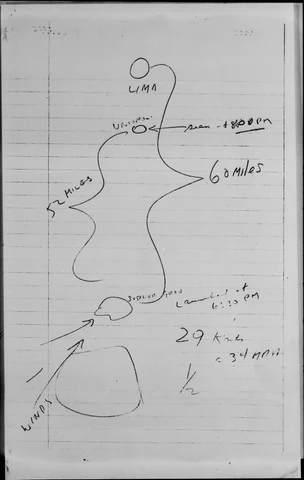 LIMA
seen
52 MILES
60 MILES
Launched at
6:30 PM
29 Knots
34 MPH
1/2
WINDS